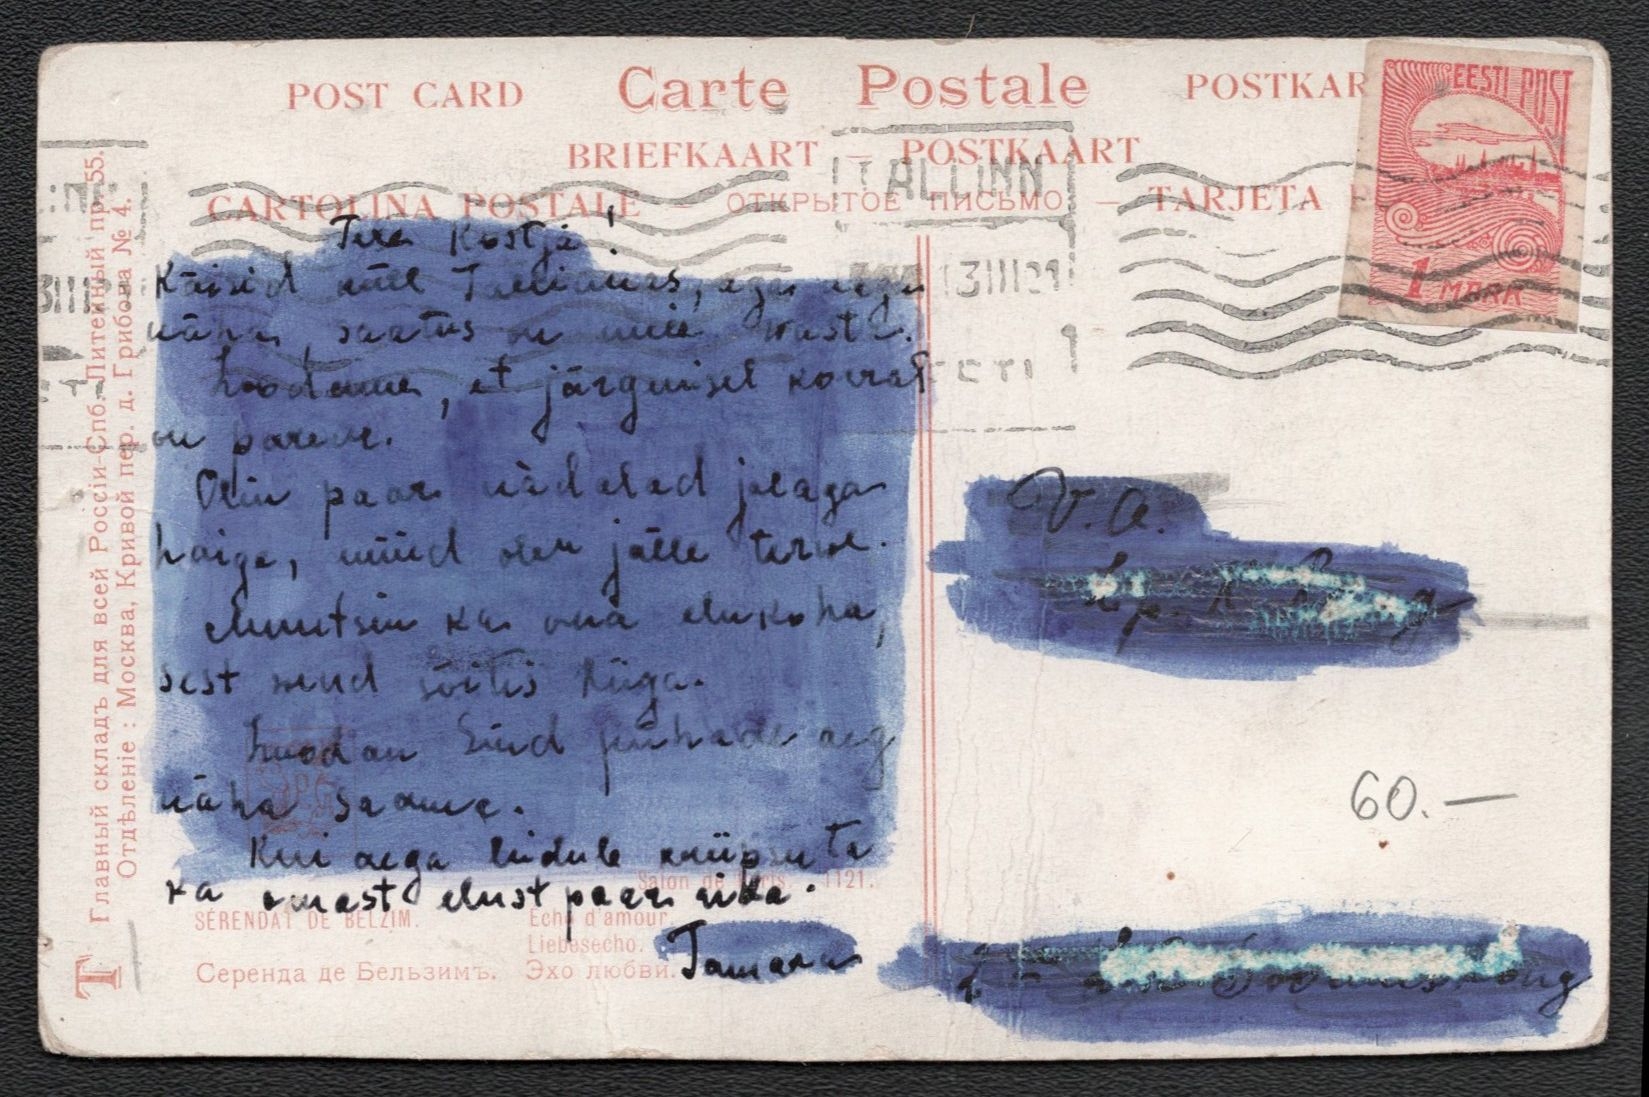 POST CARD Carte Postale POSTKAR
BRIEFKAART – POSTKAART
CARTOLINA POSTALE – ОТКРЫТОЕ ПИСЬМО – TARJETA P
EESTI POST
1 MARK
TALLINN
EESTI
Главный складъ для всей Россіи-Спб. Литейный пр. 55.
Отдѣленіе : Москва, Кривой пер. д. Грибова № 4.
Tere Kostja!
Käisid küll Tallinnas, aga aega
näha, saatus on meie wastu.
Loodame, et järgmisel korral
on parem.
Olin paar nädalad jalaga
haige, nüüd olen jälle terve.
Muutsin ka oma elukoha,
sest wend sõitis Riiga.
Loodan Sind pühade aeg
näha saame.
Kui aega leidub
ka omast elust paar rida.
Tamara
V. A.
60.—
Salon de Paris 1121.
SÉRENDAT DE BELZIM. Echo d'amour.
Liebesecho.
Серенда де Бельзимъ. Эхо любви.
T